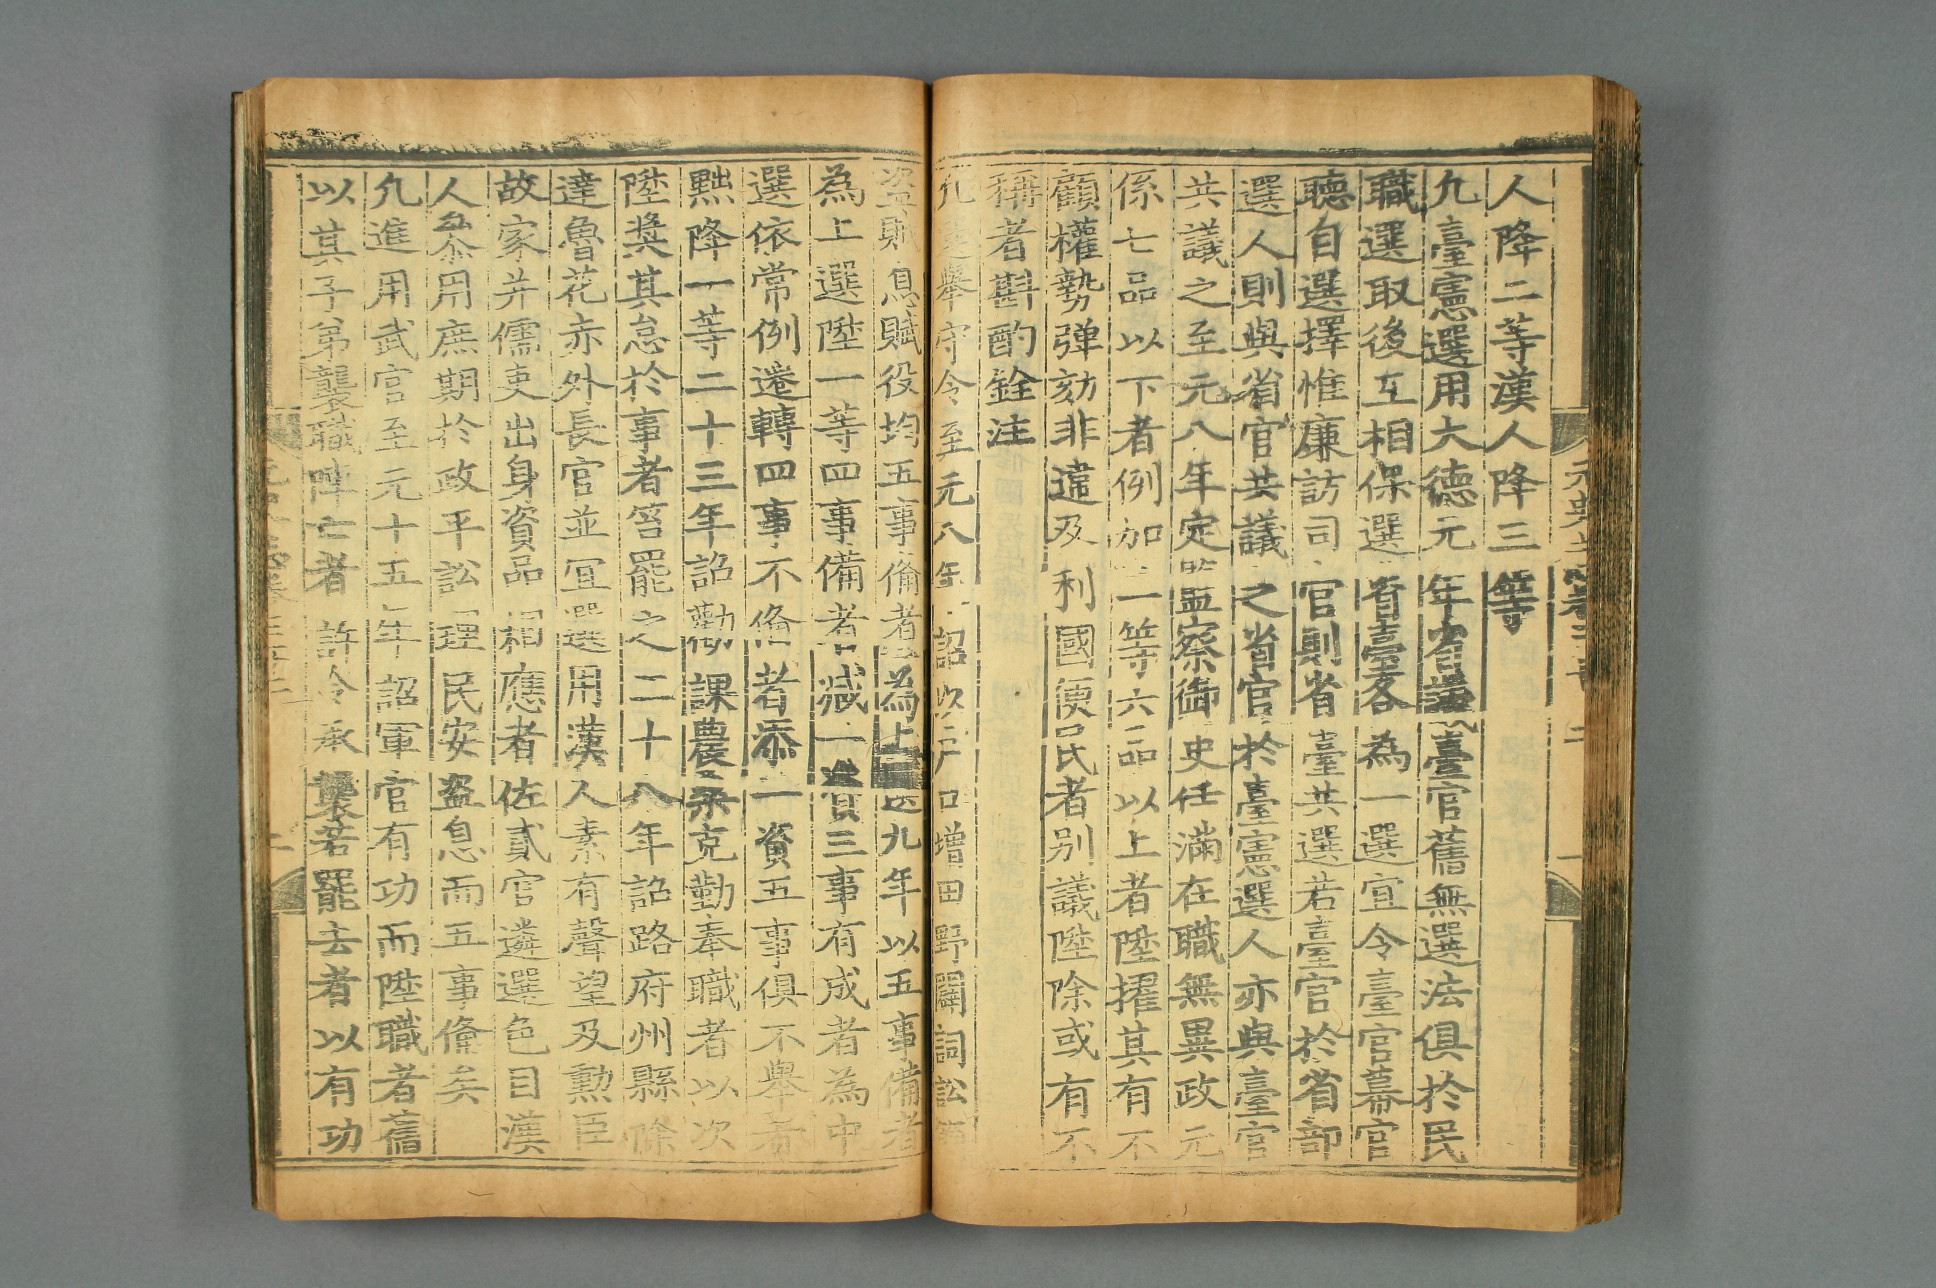 人降二等漢人降三等
凢臺憲選用大德元年省議臺官舊無選法俱於民
職選取後互相保選省臺各為一選宜令臺官幕官
聽自選擇惟廉訪司官則省臺共選若臺官於省部
選人則與省官共議之省官於臺憲選人亦與臺官
共議之至元八年定監察御史任滿在職無異政元
係七品以下者例加一等六品以上者陞擢其有不
顧權勢弹劾非違及利國便民者别議陞除或有不
稱者斟酌銓注
凢選舉守令至元八年詔以户口增田野闢詞訟簡
盗賊息賦役均五事俻者為上選九年以五事備者
為上選陞一等四事備者减一資三事有成者為中
選依常例遷轉四事不俻者添一資五事俱不舉者
黜降一等二十三年詔勸課農桒克勤奉職者以次
陞奬其怠於事者笞罷之二十八年詔路府州縣除
達魯花赤外長官並宜選用漢人素有聲望及勲臣
故家并儒吏出身資品相應者佐貳官遴選色目漢
人叅用庶期於政平訟理民安盗息而五事俻矣
凢進用武官至元十五年詔軍官有功而陞職者舊
以其子弟襲職陣亡者許令承襲若罷去者以有功